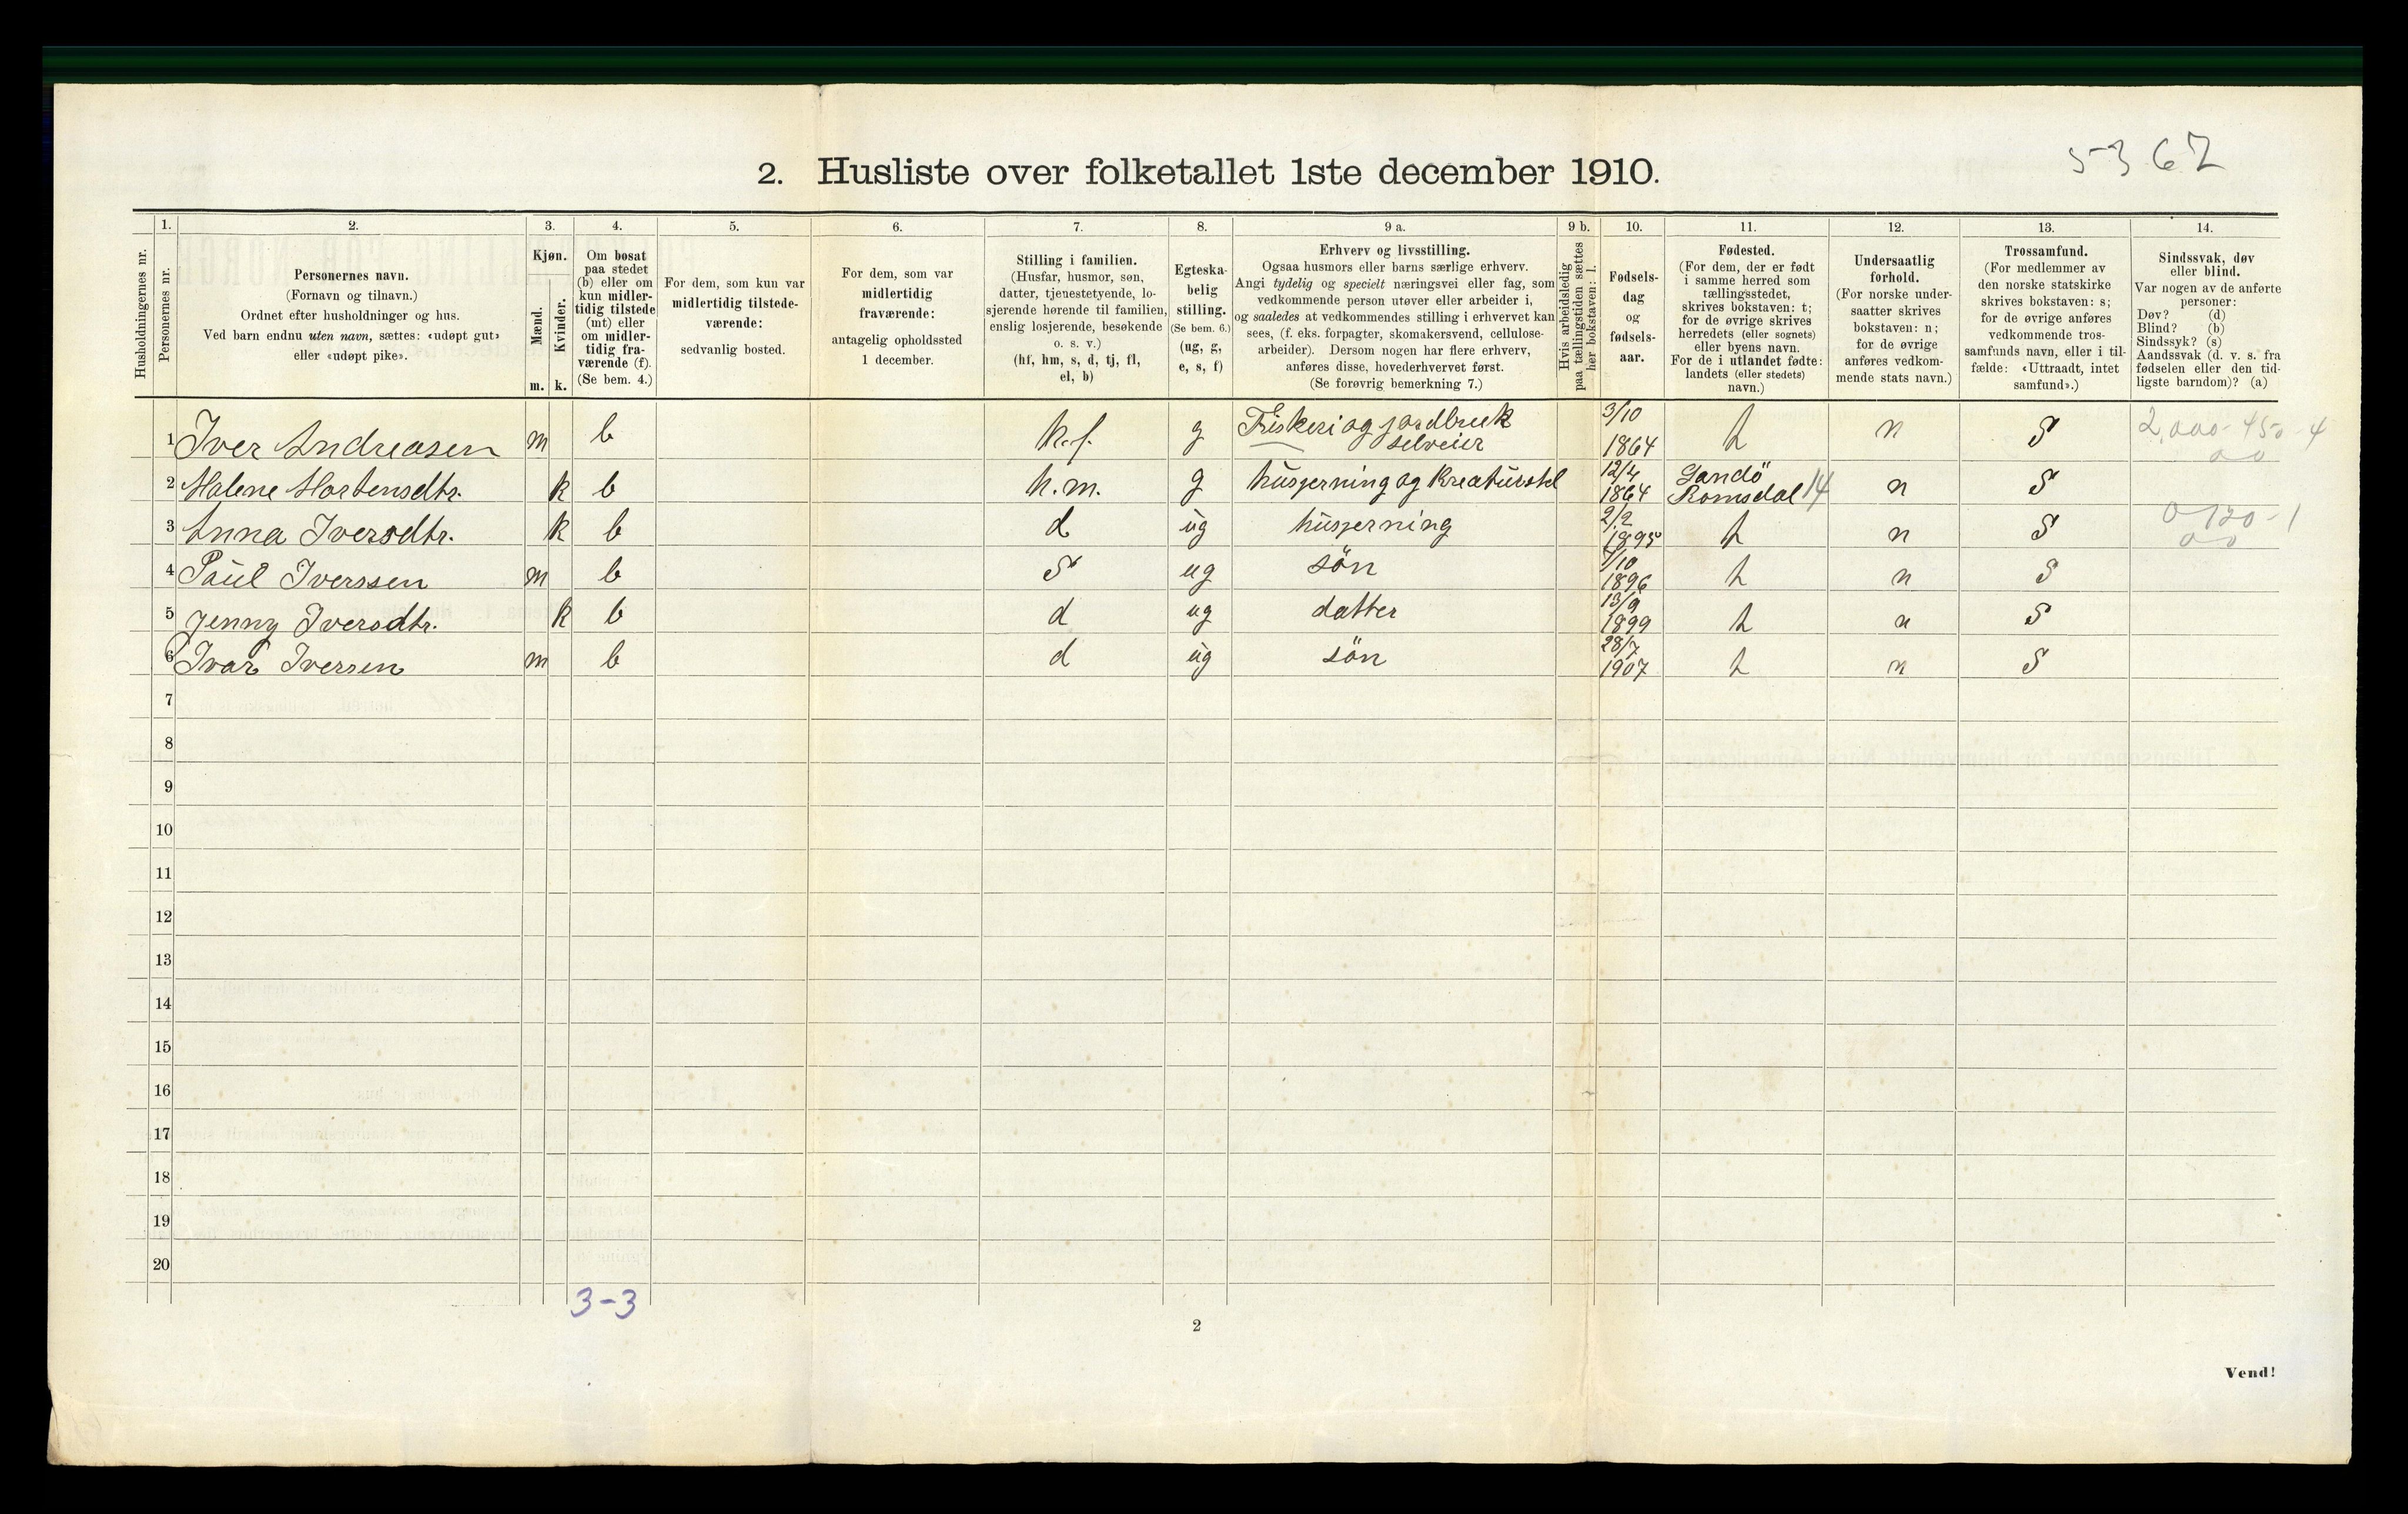 5362
2. Husliste over folketallet 1ste december 1910.
Husholdningernes nr.
1.
Personernes nr.
2.
Personernes navn.
(Fornavn og tilnavn.)
Ordnet efter husholdninger og hus.
Ved barn endnu uten navn, sættes: «udøpt gut»
eller «udøpt pike».
3.
Kjøn.
Mænd.
Kvinder.
m. k.
4.
Om bosat
paa stedet
(b) eller om
kun midler-
tidig tilstede
(mt) eller
om midler-
tidig fra-
værende (f).
(Se bem. 4.)
5.
For dem, som kun var
midlertidig tilstede-
værende:
sedvanlig bosted.
6.
For dem, som var
midlertidig
fraværende:
antagelig opholdssted
1 december.
7.
Stilling i familien.
(Husfar, husmor, søn,
datter, tjenestetyende, lo-
sjerende hørende til familien,
enslig losjerende, besøkende
o. s. v.)
(hf, hm, s, d, tj, fl,
el, b)
8.
Egteska-
belig
stilling.
(Se bem. 6.)
(ug, g,
e, s, f)
9 a.
Erhverv og livsstilling.
Ogsaa husmors eller barns særlige erhverv.
Angi tydelig og specielt næringsvei eller fag, som
vedkommende person utøver eller arbeider i,
og saaledes at vedkommendes stilling i erhvervet kan
sees, (f. eks. forpagter, skomakersvend, cellulose-
arbeider). Dersom nogen har flere erhverv,
anføres disse, hovederhvervet først.
(Se forøvrig bemerkning 7.)
9 b.
Hvis arbeidsledig
paa tællingstiden sættes
her bokstaven: l.
10.
Fødsels-
dag
og
fødsels-
aar.
11.
Fødested.
(For dem, der er født
i samme herred som
tællingsstedet,
skrives bokstaven: t;
for de øvrige skrives
herredets (eller sognets)
eller byens navn.
For de i utlandet fødte:
landets (eller stedets)
navn.)
12.
Undersaatlig
forhold.
(For norske under-
saatter skrives
bokstaven: n;
for de øvrige
anføres vedkom-
mende stats navn.)
13.
Trossamfund.
(For medlemmer av
den norske statskirke
skrives bokstaven: s;
for de øvrige anføres
vedkommende tros-
samfunds navn, eller i til-
fælde: «Uttraadt, intet
samfund».)
14.
Sindssvak, døv
eller blind.
Var nogen av de anførte
personer:
Døv? (d)
Blind? (b)
Sindssyk? (s)
Aandssvak (d. v. s. fra
fødselen eller den tid-
ligste barndom)? (a)
1 Iver Andreasen m b h.f. g Fiskeri og jordbruk selveier 3/10 1864 t n S 2,000-450-4
2 Malene Mortensdtr. k b h.m. g husgerning og Kreaturstel 12/4 1864 Sandö Romsdal 14 n S
3 Anna Iversdtr. k b d ug husgerning 2/2 1895 t n S 0-120-1
4 Paul Iverssen m b S ug sön 1/10 1896 t n S
5 Jenny Iversdtr. k b d ug datter 13/9 1899 t n S
6 Ivar Iversen m b d ug sön 28/7 1907 t n S
7
8
9
10
11
12
13
14
15
16
17
18
19
20
3-3
2
Vend!